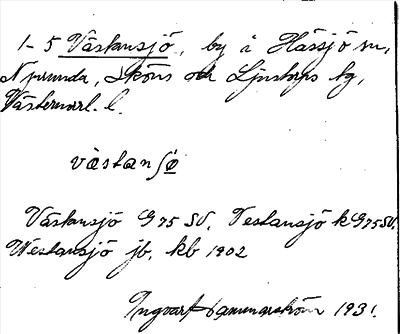 1-5 Västansjö, by i Hässjö sn,
Njurunda, Sköns och Ljustorps tg,
Västernorrl. l.
vàstanʃö
Västansjö G 75 SV. Vestansjö k G 75 SV.
Westansjö jb, kb 1902
Ingvar Hammarström 1931.